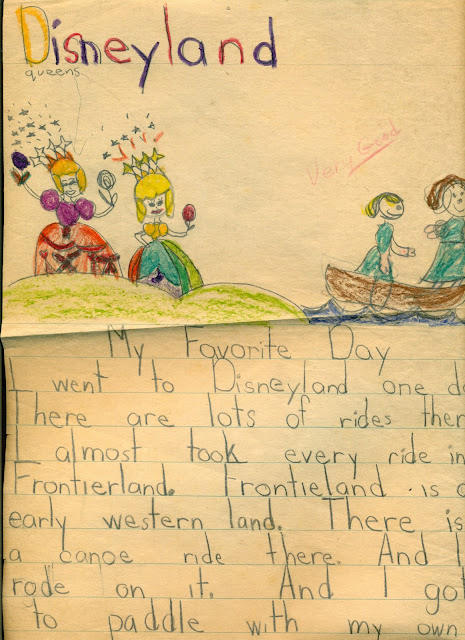 Disneyland
queens
Very Good
My Favorite Day
I went to Disneyland one d
There are lots of rides ther
I almost took every ride in
Frontierland. Frontieland is a
early western land. There is
a canoe ride there. And I
rode on it. And I got
to paddle with my own